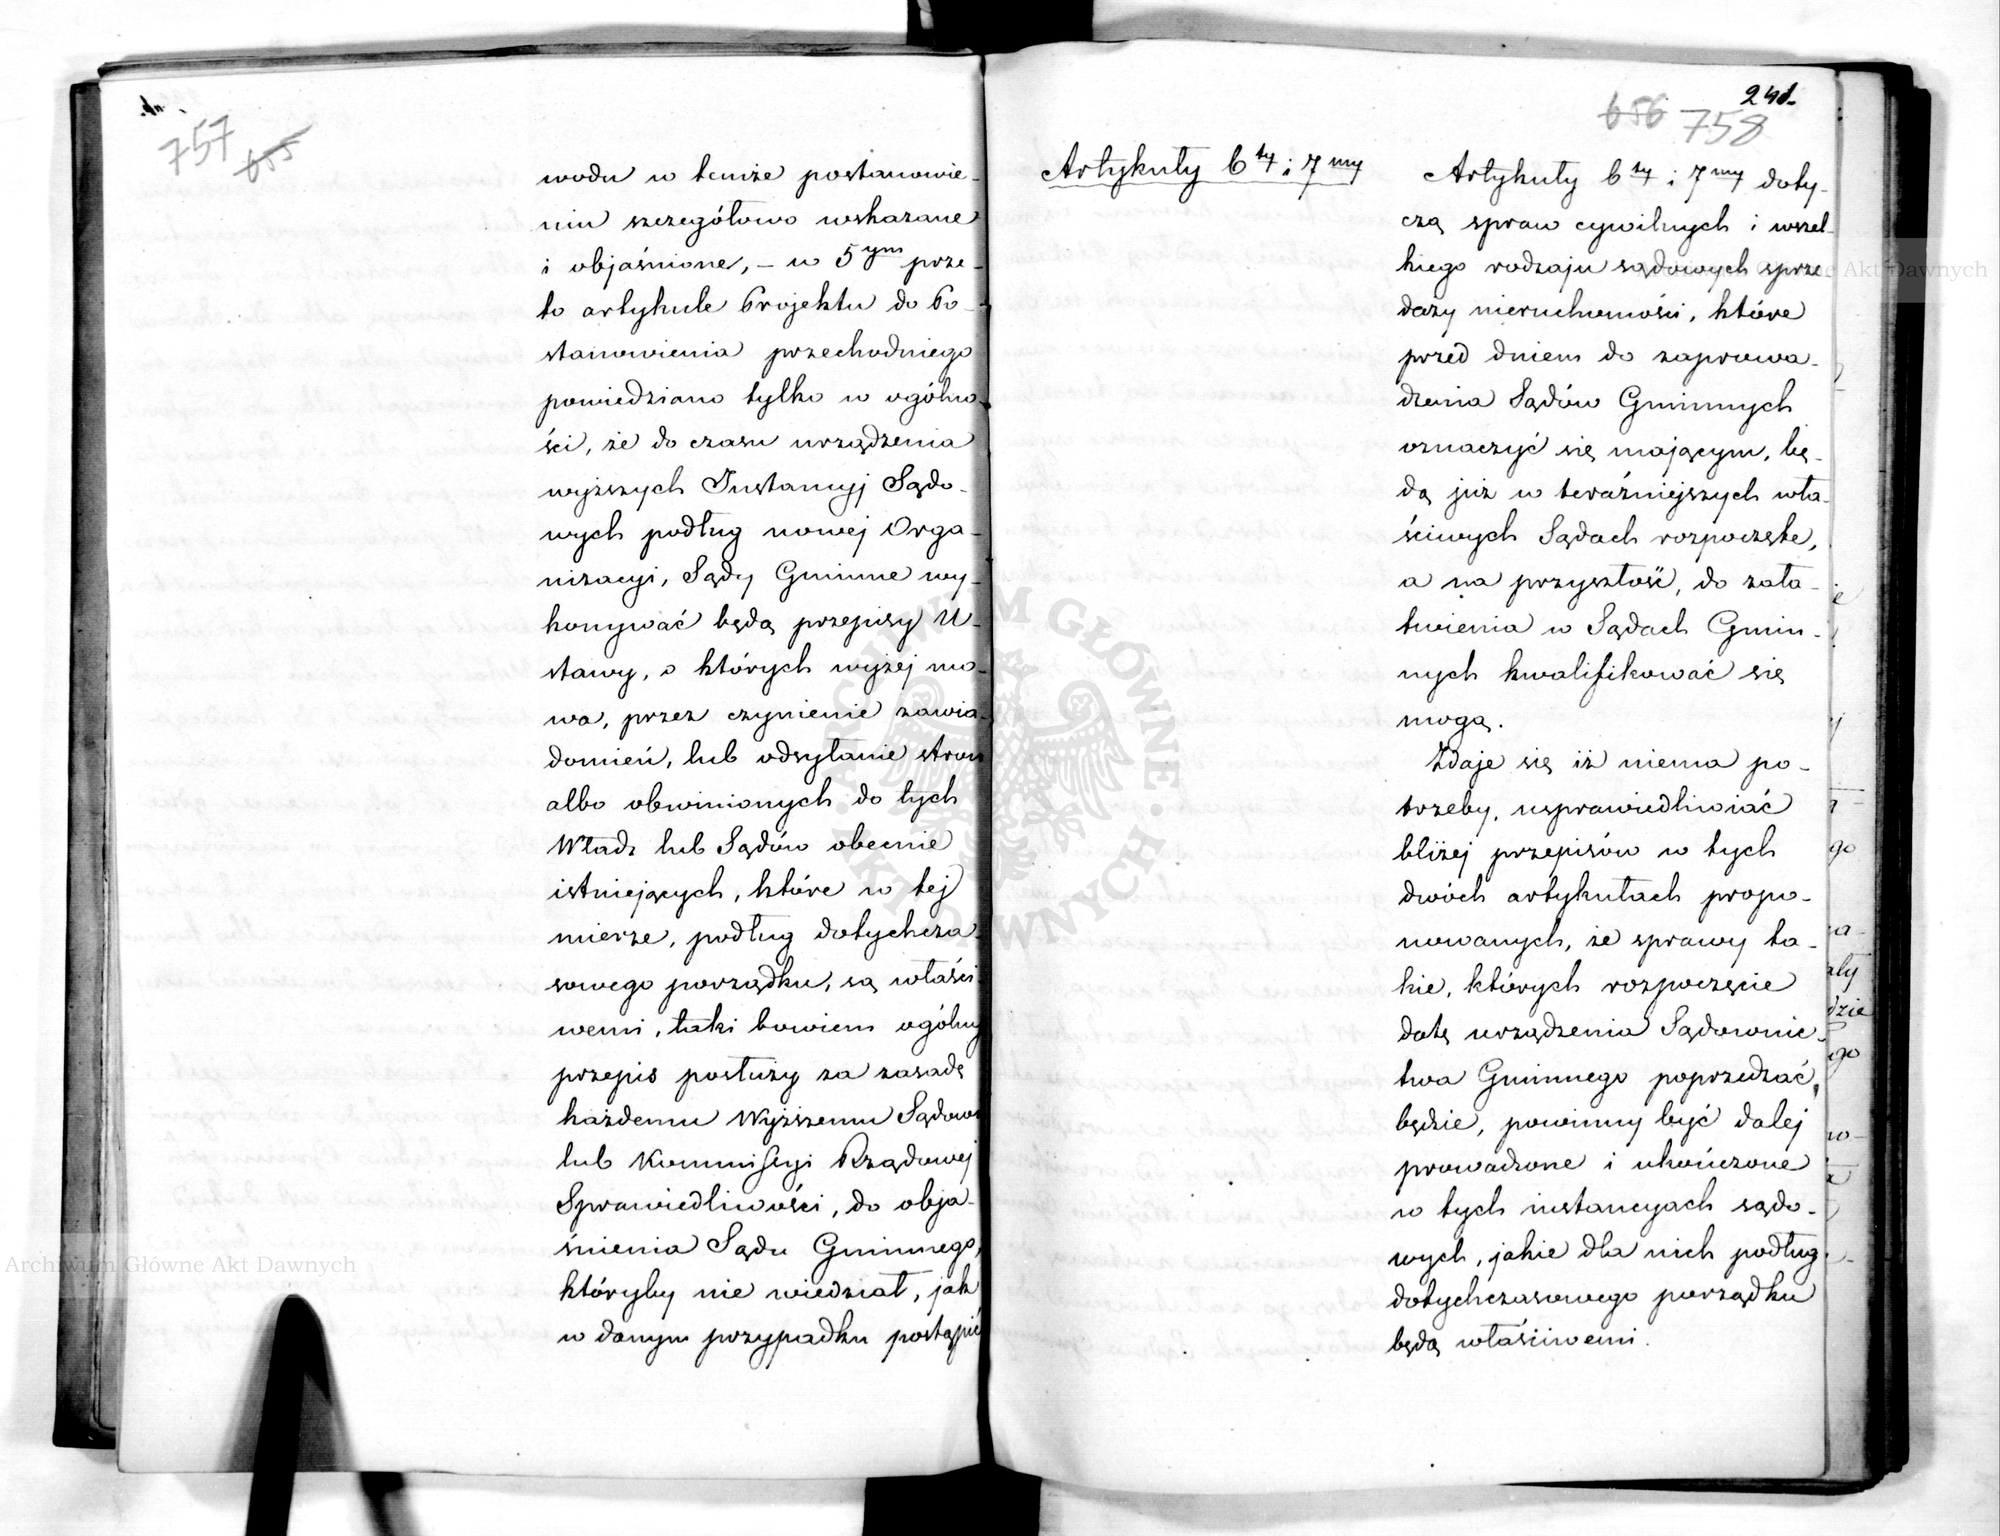 757 655
wodu w temże postanowie-
niu szczegółowo wskazane
i objaśnione, – w 5ym prze-
to artykule Projektu do Po-
stanowienia przechodniego
powiedziano tylko w ogólno-
ści, że do czasu urządzenia
wyższych Instancyj Sądo-
wych podług nowej Orga-
nizacyi, Sądy Gminne wy-
konywać będą przepisy U-
stawy, o których wyżej mo-
wa, przez czynienie zawia-
domień, lub odsyłanie stron
albo obwinionych do tych
Władz lub Sądów obecnie
istniejących, które w tej
mierze, podług dotychcza-
sowego porządku, są właści-
wemi, taki bowiem ogólny
przepis posłuży za zasadę
każdemu Wyższemu Sądowi
lub Kommissyi Rządowej
Sprawiedliwości, do obja-
śnienia Sądu Gminnego,
któryby nie wiedział, jak
w danym przypadku postąpić
241.
656 758
Artykuły 6ty i 7my
Artykuły 6ty i 7my doty-
czą spraw cywilnych i wszel-
kiego rodzaju sądowych sprze-
daży nieruchomości, które
przed dniem do zaprowa-
dzenia Sądów Gminnych
oznaczyć się mającym, bę-
dą już w teraźniejszych wła-
ściwych Sądach rozpoczęte,
a na przyszłość, do zała-
twienia w Sądach Gmin-
nych kwalifikować się
mogą.
Zdaje się iż niema po-
trzeby, usprawiedliwiać
bliżej przepisów w tych
dwóch artykułach propo-
nowanych, że sprawy ta-
kie, których rozpoczęcie
datę urządzenia Sądownic-
twa Gminnego poprzedzać
będzie, powinny być dalej
prowadzone i ukończone
w tych instancyach sądo-
wych, jakie dla nich podług
dotychczasowego porządku
będą właściwemi.
Archiwum Główne Akt Dawnych
Główne Akt Dawnych
ARCHIWUM GŁÓWNE AKT DAWNYCH